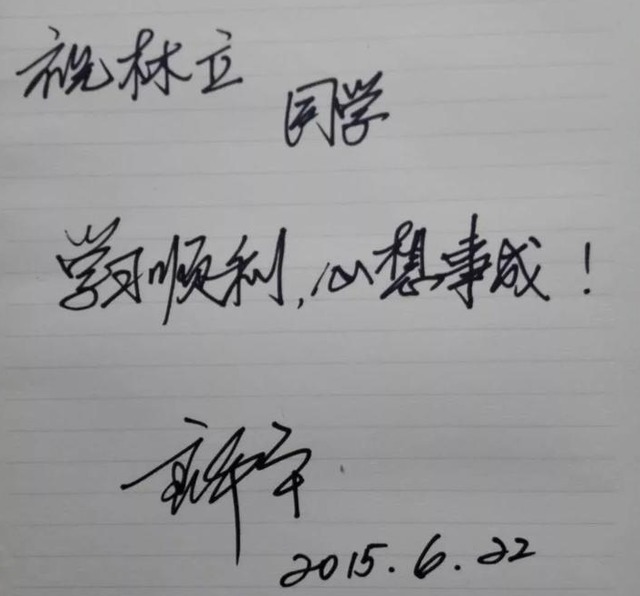 祝林立
同学
学习顺利,心想事成!
2015.6.22